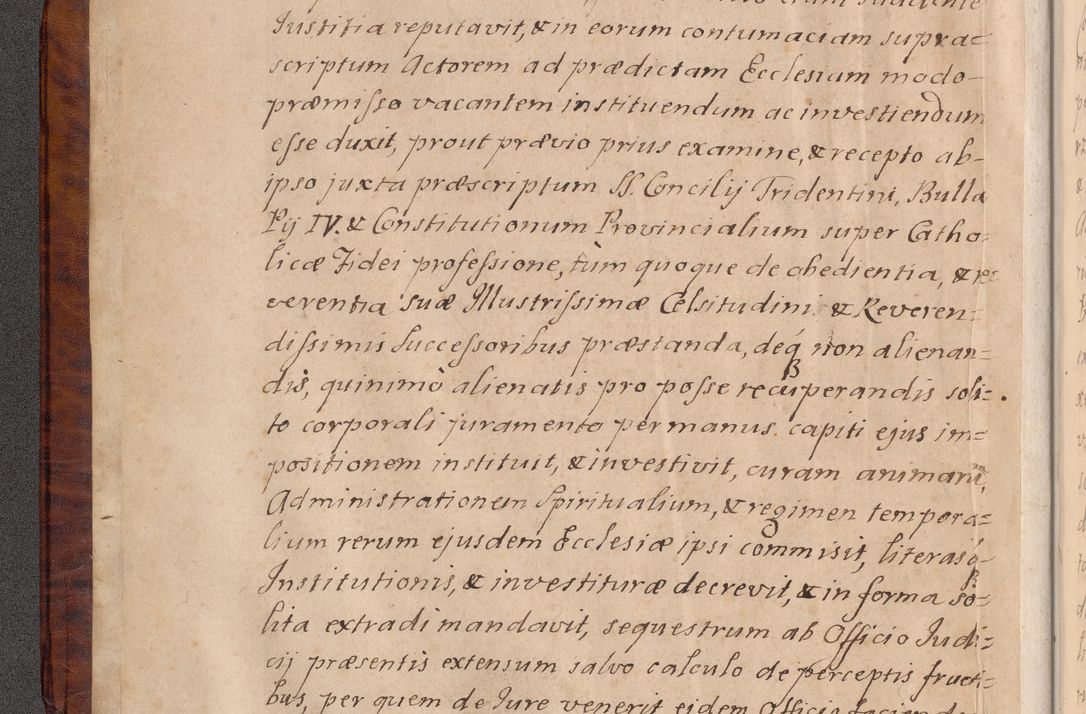 Justitia reputavit, & in eorum contumaciam supra=
scriptum Actorem ad prædictam Ecclesiam modo-
præmisso vacantem instituendum ac investiendum
esse duxit, prout prævio prius examine, & recepto ab-
ipso juxta præscriptum SS. Concilij Tridentini, Bulla
Pij IV. & Constitutionum Provincialium super Catho=
licæ Fidei professione, tùm quoque de obedientia, & re=
verentia suæ Illustrissimæ Celsitudini & Reveren=
dissimis Successoribus præstanda, deq́ non alienan=
dis, quinimò alienatis pro posse recuperandis soli=
to corporali juramento per manus capiti ejus im=
positionem instituit, & investivit, curam animarū,
Administrationem Spiritualium, & regimen tempora=
lium rerum ejusdem Ecclesiæ ipsi commisit, literasq́-
Institutionis, & investituræ decrevit, & in forma so=
lita extradi mandavit, sequestrum ab Officio Judi=
cij præsentis extensum salvo calculo de perceptis fructi=
bus, per quem de Jure venerit eidem Officio